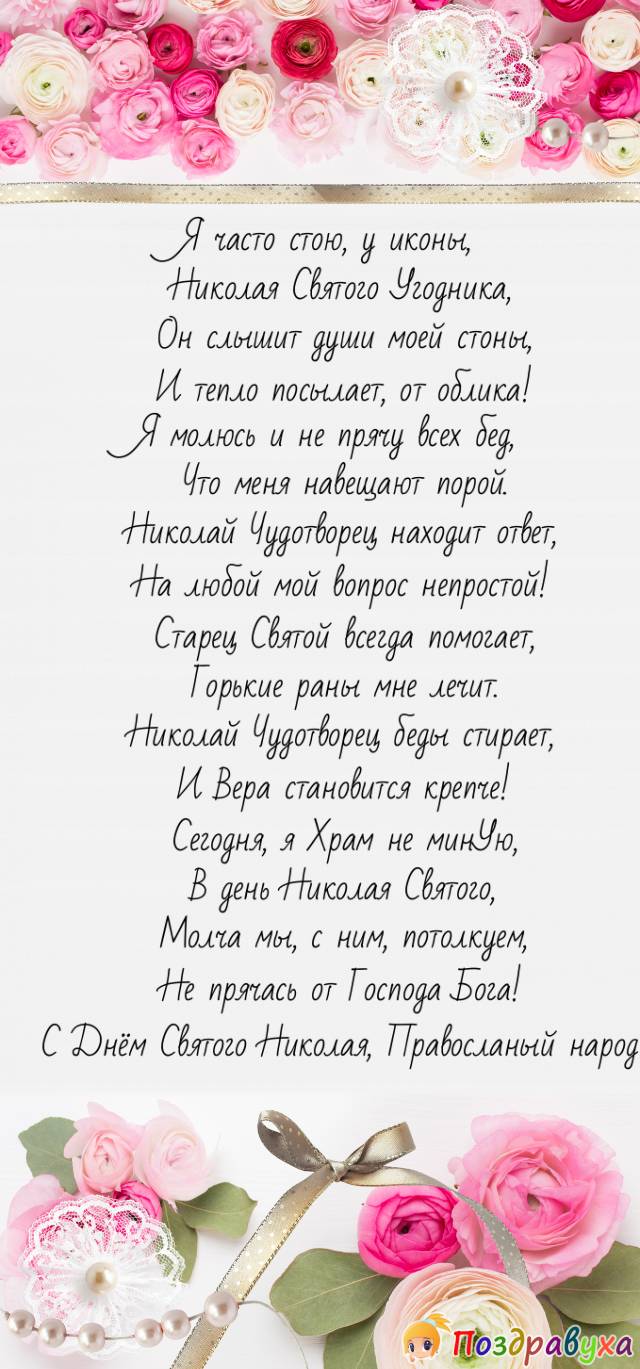 Я часто стою, у иконы,
Николая Святого Угодника,
Он слышит души моей стоны,
И тепло посылает, от облика!
Я молюсь и не прячу всех бед,
Что меня навещают порой.
Николай Чудотворец находит ответ,
На любой мой вопрос непростой!
Старец Святой всегда помогает,
Горькие раны мне лечит.
Николай Чудотворец беды стирает,
И Вера становится крепче!
Сегодня, я Храм не минУю,
В день Николая Святого,
Молча мы, с ним, потолкуем,
Не прячась от Господа Бога!
С Днём Святого Николая, Правосланый народ
Поздравуха